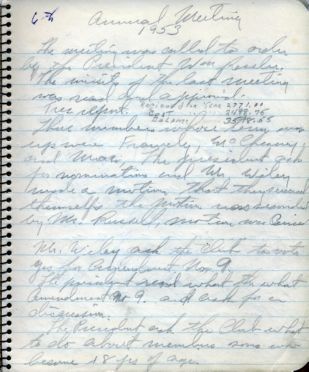 6th Annual Meeting
1953
The meeting was called to order
by the President Wm
The minits of the last meeting
was read and approved.
Tres report. Received for Year 2771.00
Balance
Three members whose term was
up were Frawely, McChesney,
and Moats, The president ask
for nominations and Mr. Wiley
made a motion that they succeed
themselfs the motion was seconded
by Mr. Russell, motion was
Mr. Wiley ask the Club to vote
yes for Amendment No 9.
The president read what the what
Amendment No 9. and ask for an
discussion.
The President ask the Club what
to do about members sons who
become 18 yrs of age.